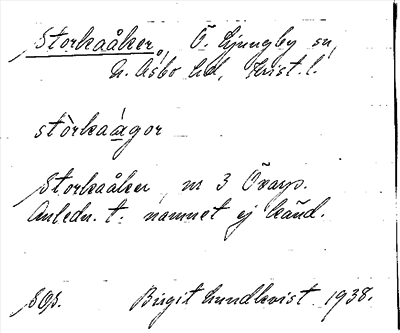 Storkaåker, Ö. Ljungby sn,
N. Åsbo hd, Krist. l.
stòrkaágor
Storkaåker nr 3 Öxarp.
Anledn. t. namnet ej känd.
Birgit Lundkvist 1938.